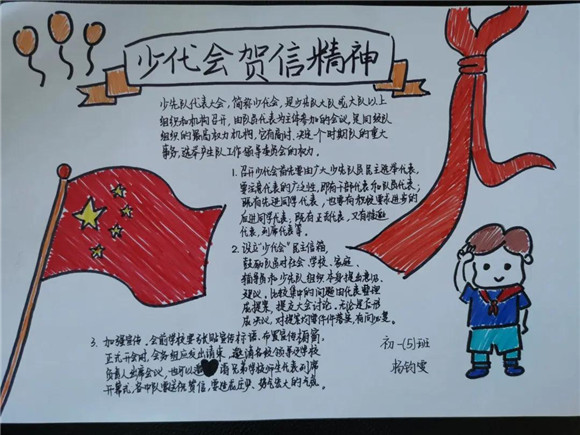 少代会贺信精神
少先队代表大会，简称少代会，是少先队大队或大队以上
组织和机构召开，由队员代表为主体参加的会议，是同级队
组织的最高权力机构，它有商讨、决定一个时期队的重大
事务，选举产生队工作领导委员会的权力。
1. 召开少代会首先要由广大少先队员民主选举代表，
要注意代表的广泛性，即有干部代表和队员代表；
既有先进同学代表，也要有积极要求进步的
后进同学代表；既有正式代表，又有
代表、列席代表等。
2. 设立“少代会”民主信箱
鼓励队员对社会、学校、家庭、
辅导员和少先队组织本身提出意见、
建议。比较集中的问题由代表整理
成提案，提交大会讨论，无论是否形
成决议，对提案均需件件落实，有问必复。
3. 加强宣传。会前学校要张贴宣传标语、布置宣传橱窗，
正式开会时，会务组应发出请柬，邀请各级领导及学校
负责人出席会议，也可以邀请兄弟学校师生代表列席
开幕式，各中队要送祝贺信，要造成庄严、
初一(5)班
杨钧雯